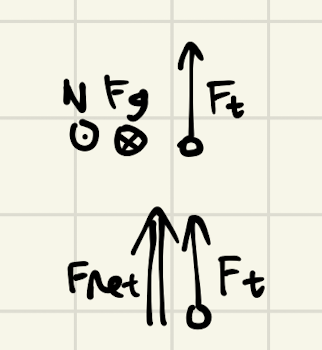 N Fg Ft
Fnet Ft